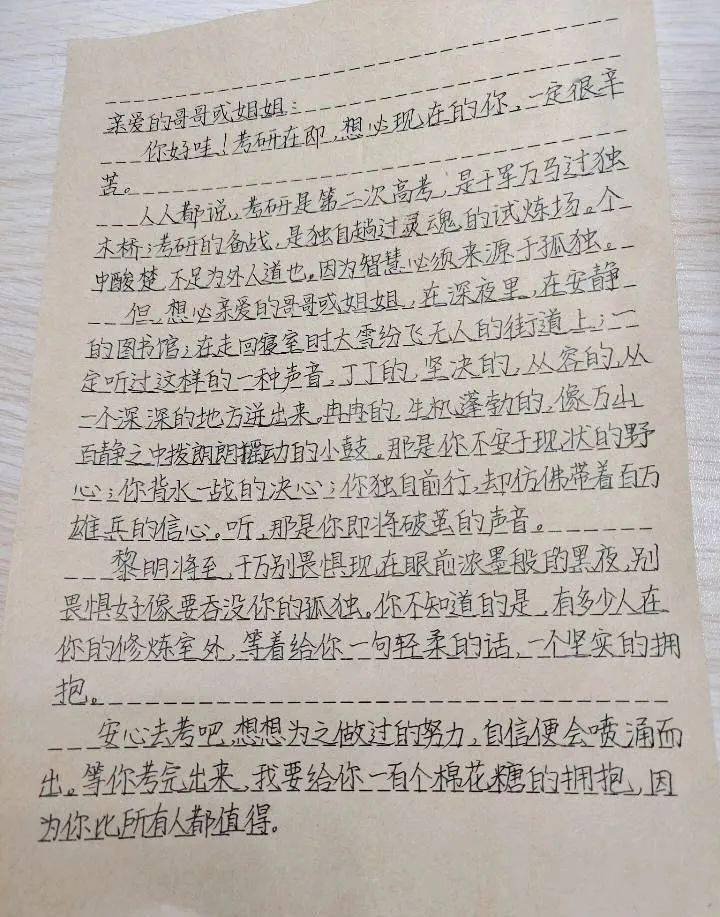 亲爱的哥哥或姐姐：
你好哇！考研在即，想必现在的你，一定很辛
苦。
人人都说，考研是第二次高考，是千军万马过独
木桥；考研的备战，是独自趟过灵魂的试炼场。个
中酸楚，不足为外人道也。因为智慧必须来源于孤独。
但，想必亲爱的哥哥或姐姐，在深夜里，在安静
的图书馆；在走回寝室时大雪纷飞无人的街道上；一
定听过这样的一种声音，丁丁的，坚决的，从容的，从
一个深深的地方迸出来。冉冉的，生机蓬勃的，像万山
百静之中拨朗朗摇动的小鼓。那是你不安于现状的野
心；你背水一战的决心；你独自前行，却仿佛带着百万
雄兵的信心。听，那是你即将破茧的声音。
黎明将至，千万别畏惧现在眼前浓墨般的黑夜，别
畏惧好像要吞没你的孤独。你不知道的是，有多少人在
你的修炼室外，等着给你一句轻柔的话，一个坚实的拥
抱。
安心去考吧，想想为之做过的努力，自信便会喷涌而
出。等你考完出来，我要给你一百个棉花糖的拥抱，因
为你比所有人都值得。